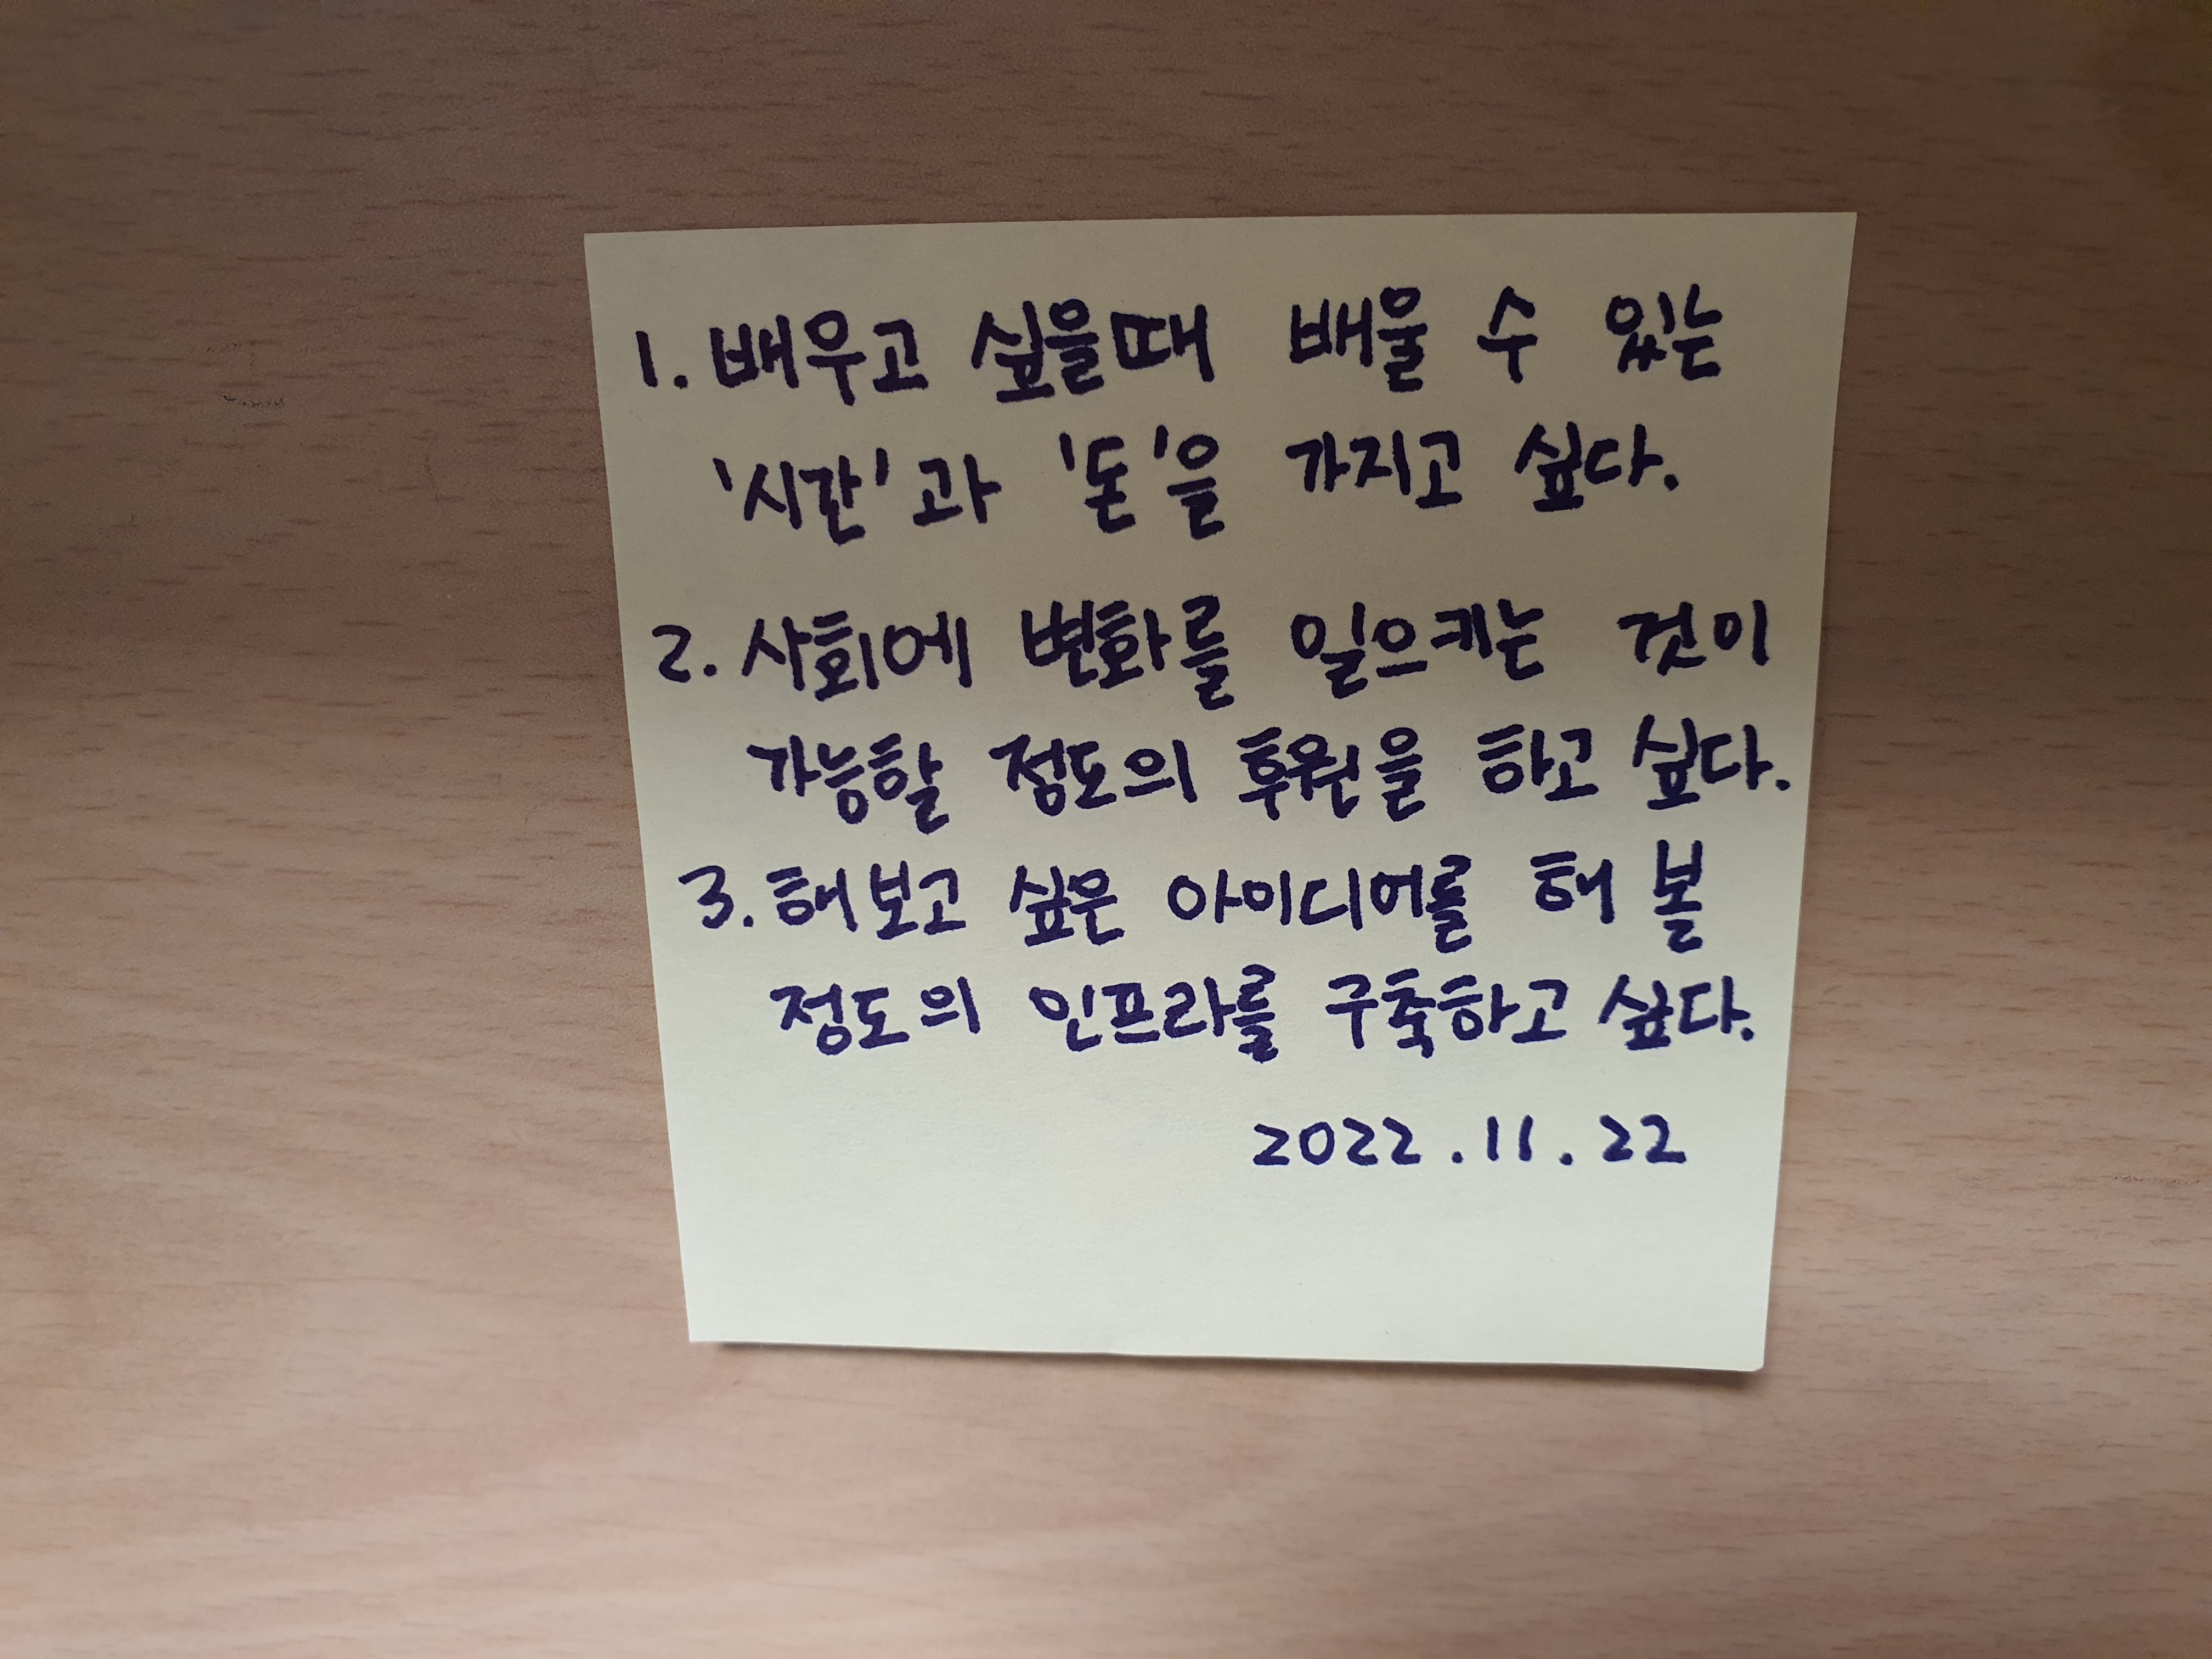 1. 배우고 싶을때 배울 수 있는
'시간'과 '돈'을 가지고 싶다.
2. 사회에 변화를 일으키는 것이
가능할 정도의 후원을 하고 싶다.
3. 해보고 싶은 아이디어를 해 볼
정도의 인프라를 구축하고 싶다.
2022.11.22